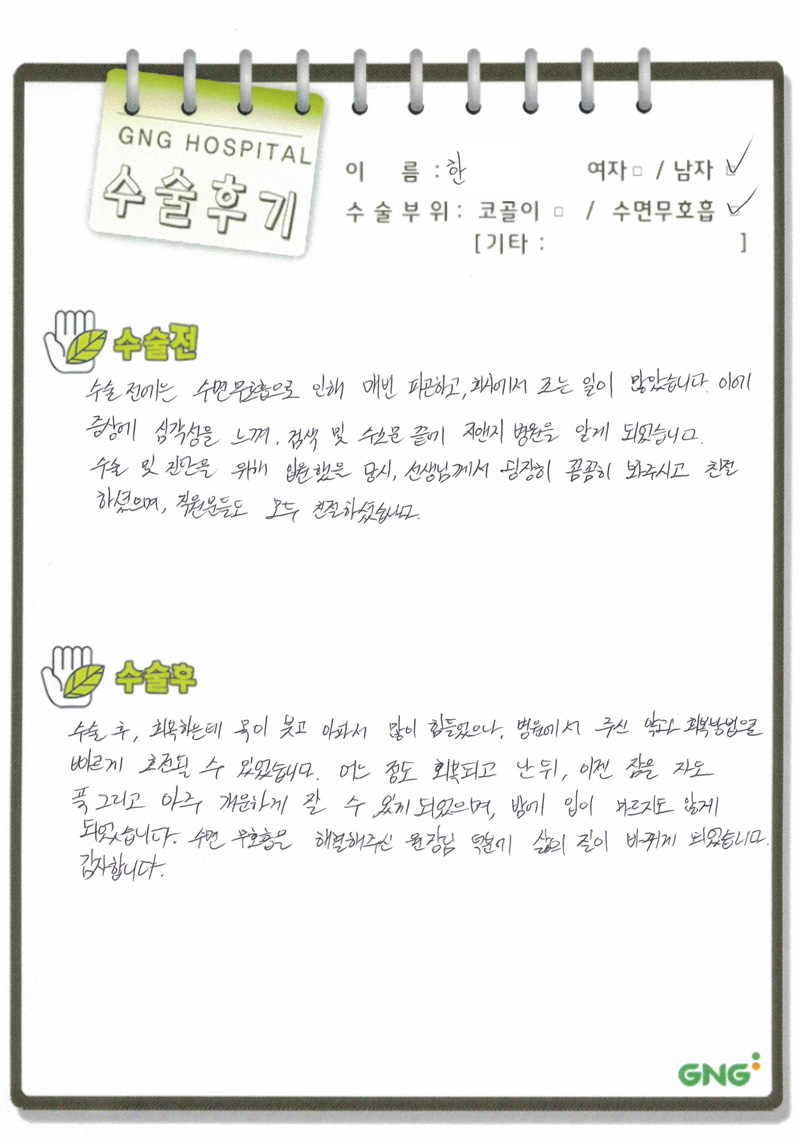 GNG HOSPITAL
수술후기
이 름 : 한 여자 □ / 남자 ☑
수술부위 : 코골이 □ / 수면무호흡 ☑
[기타 : ]
수술전
수술 전에는 수면무호흡으로 인해 매번 피곤하고, 회사에서 조는 일이 많았습니다. 이에
증상에 심각성을 느껴, 검색 및 수소문 끝에 지앤지 병원을 알게 되었습니다.
수술 및 진단을 위해 입원했을 당시, 선생님께서 굉장히 꼼꼼히 봐주시고 친절
하셨으며, 직원분들도 모두 친절하셨습니다.
수술후
수술 후, 회복하는데 목이 붓고 아파서 많이 힘들었으나, 병원에서 주신 약과 회복방법으로
빠르게 호전될 수 있었습니다. 어느 정도 회복되고 난 뒤, 이젠 잠을 자도
푹 그리고 아주 개운하게 잘 수 있게 되었으며, 밤에 입이 마르지도 않게
되었습니다. 수면 무호흡을 해결해주신 원장님 덕분에 삶의 질이 바뀌게 되었습니다.
감사합니다.
GNG